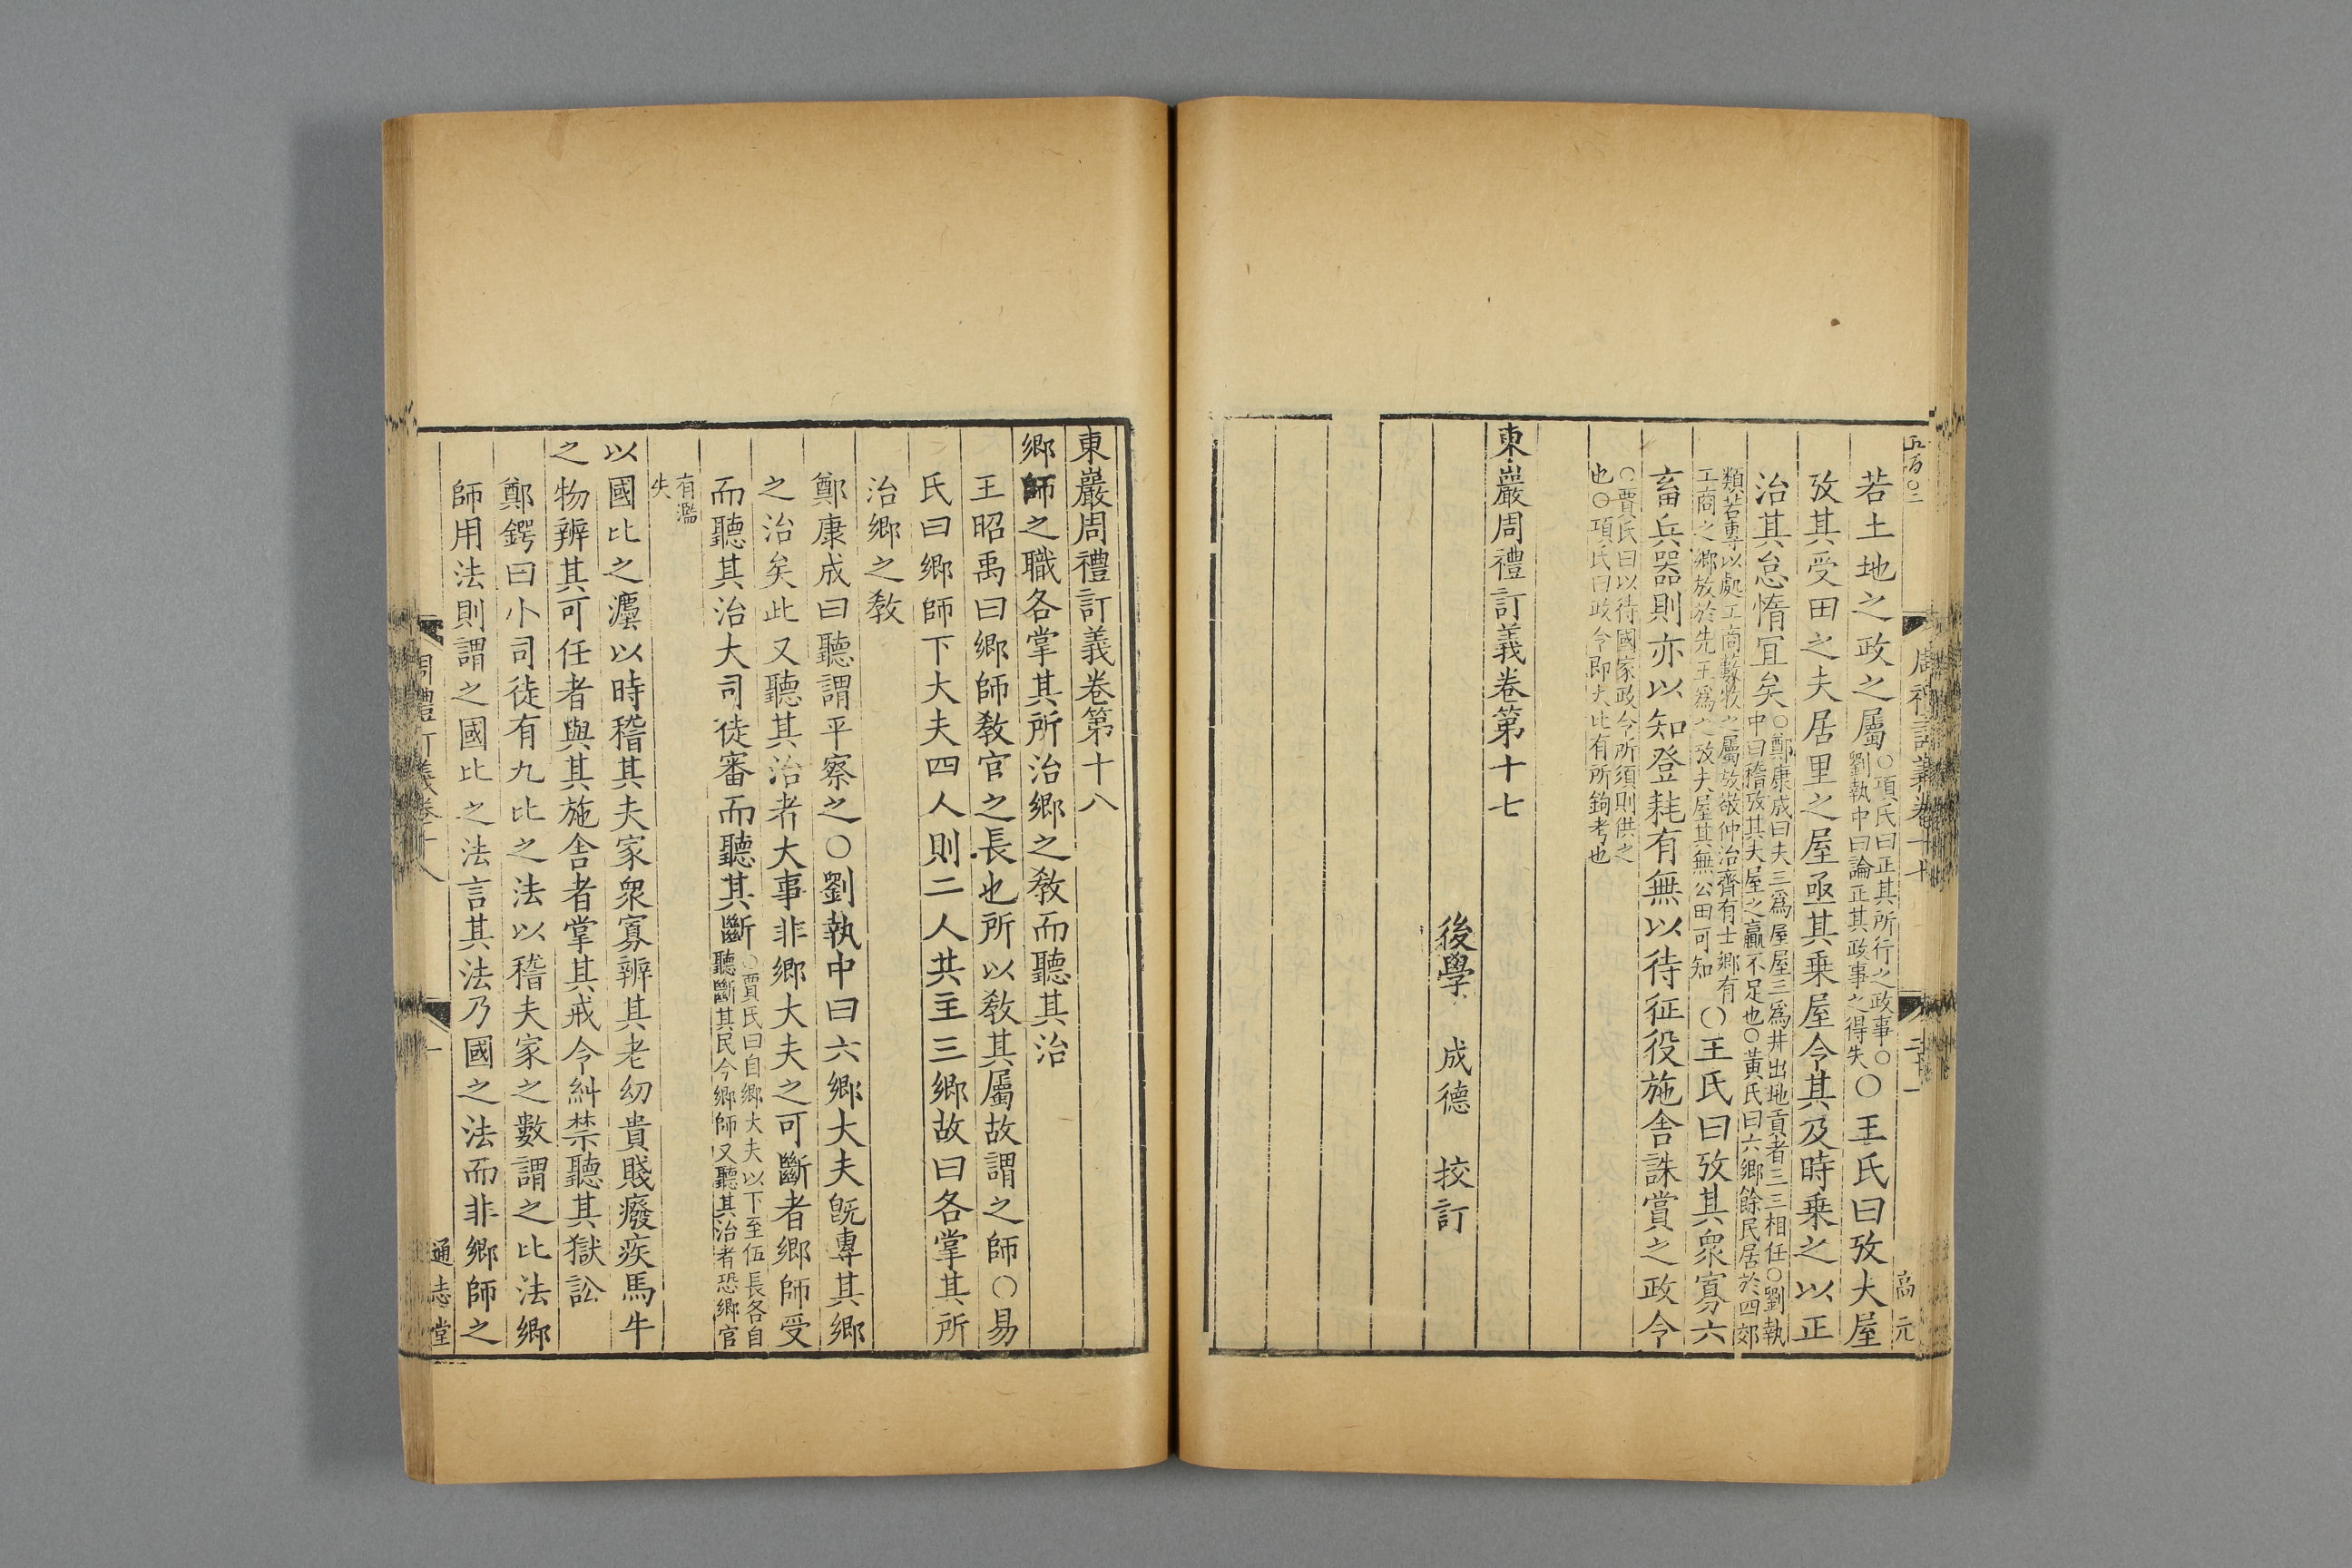 若土地之政之屬○項氏曰正其所行之政事○劉執中曰論正其政事之得失○王氏曰攷夫屋
攷其受田之夫居里之屋亟其乗屋令其及時乗之以正
治其怠惰宜矣○鄭康成曰夫三爲屋屋三爲井出地貢者三三相任○劉執中曰稽攷其夫屋之贏不足也○黃氏曰六鄉餘民居於四郊
類若專以處工商藪牧之屬故敬仲治齊有士鄉有工商之鄉放於先王爲之攷夫屋其無公田可知○王氏曰攷其衆寡六
畜兵器則亦以知登耗有無以待征役施舍誅賞之政令
○賈氏曰以待國家政令所須則供之也○項氏曰政令即大比有所鉤考也
東巖周禮訂義卷第十七
後學 成德 挍訂
高元
東巖周禮訂義卷第十八
鄉師之職各掌其所治鄉之敎而聽其治
王昭禹曰鄉師敎官之長也所以敎其屬故謂之師○易
氏曰鄉師下大夫四人則二人共主三鄉故曰各掌其所
治鄉之敎
鄭康成曰聽謂平察之○劉執中曰六鄉大夫旣專其鄉
之治矣此又聽其治者大事非鄉大夫之可斷者鄉師受
而聽其治大司徒審而聽其斷○賈氏曰自鄉大夫以下至伍長各自聽斷其民今鄉師又聽其治者恐鄉官
有濫失
以國比之灋以時稽其夫家衆寡辨其老幼貴賤癈疾馬牛
之物辨其可任者與其施舍者掌其戒令糾禁聽其獄訟
鄭鍔曰小司徒有九比之法以稽夫家之數謂之比法鄉
師用法則謂之國比之法言其法乃國之法而非鄉師之
周禮訂義卷十八
一
通志堂